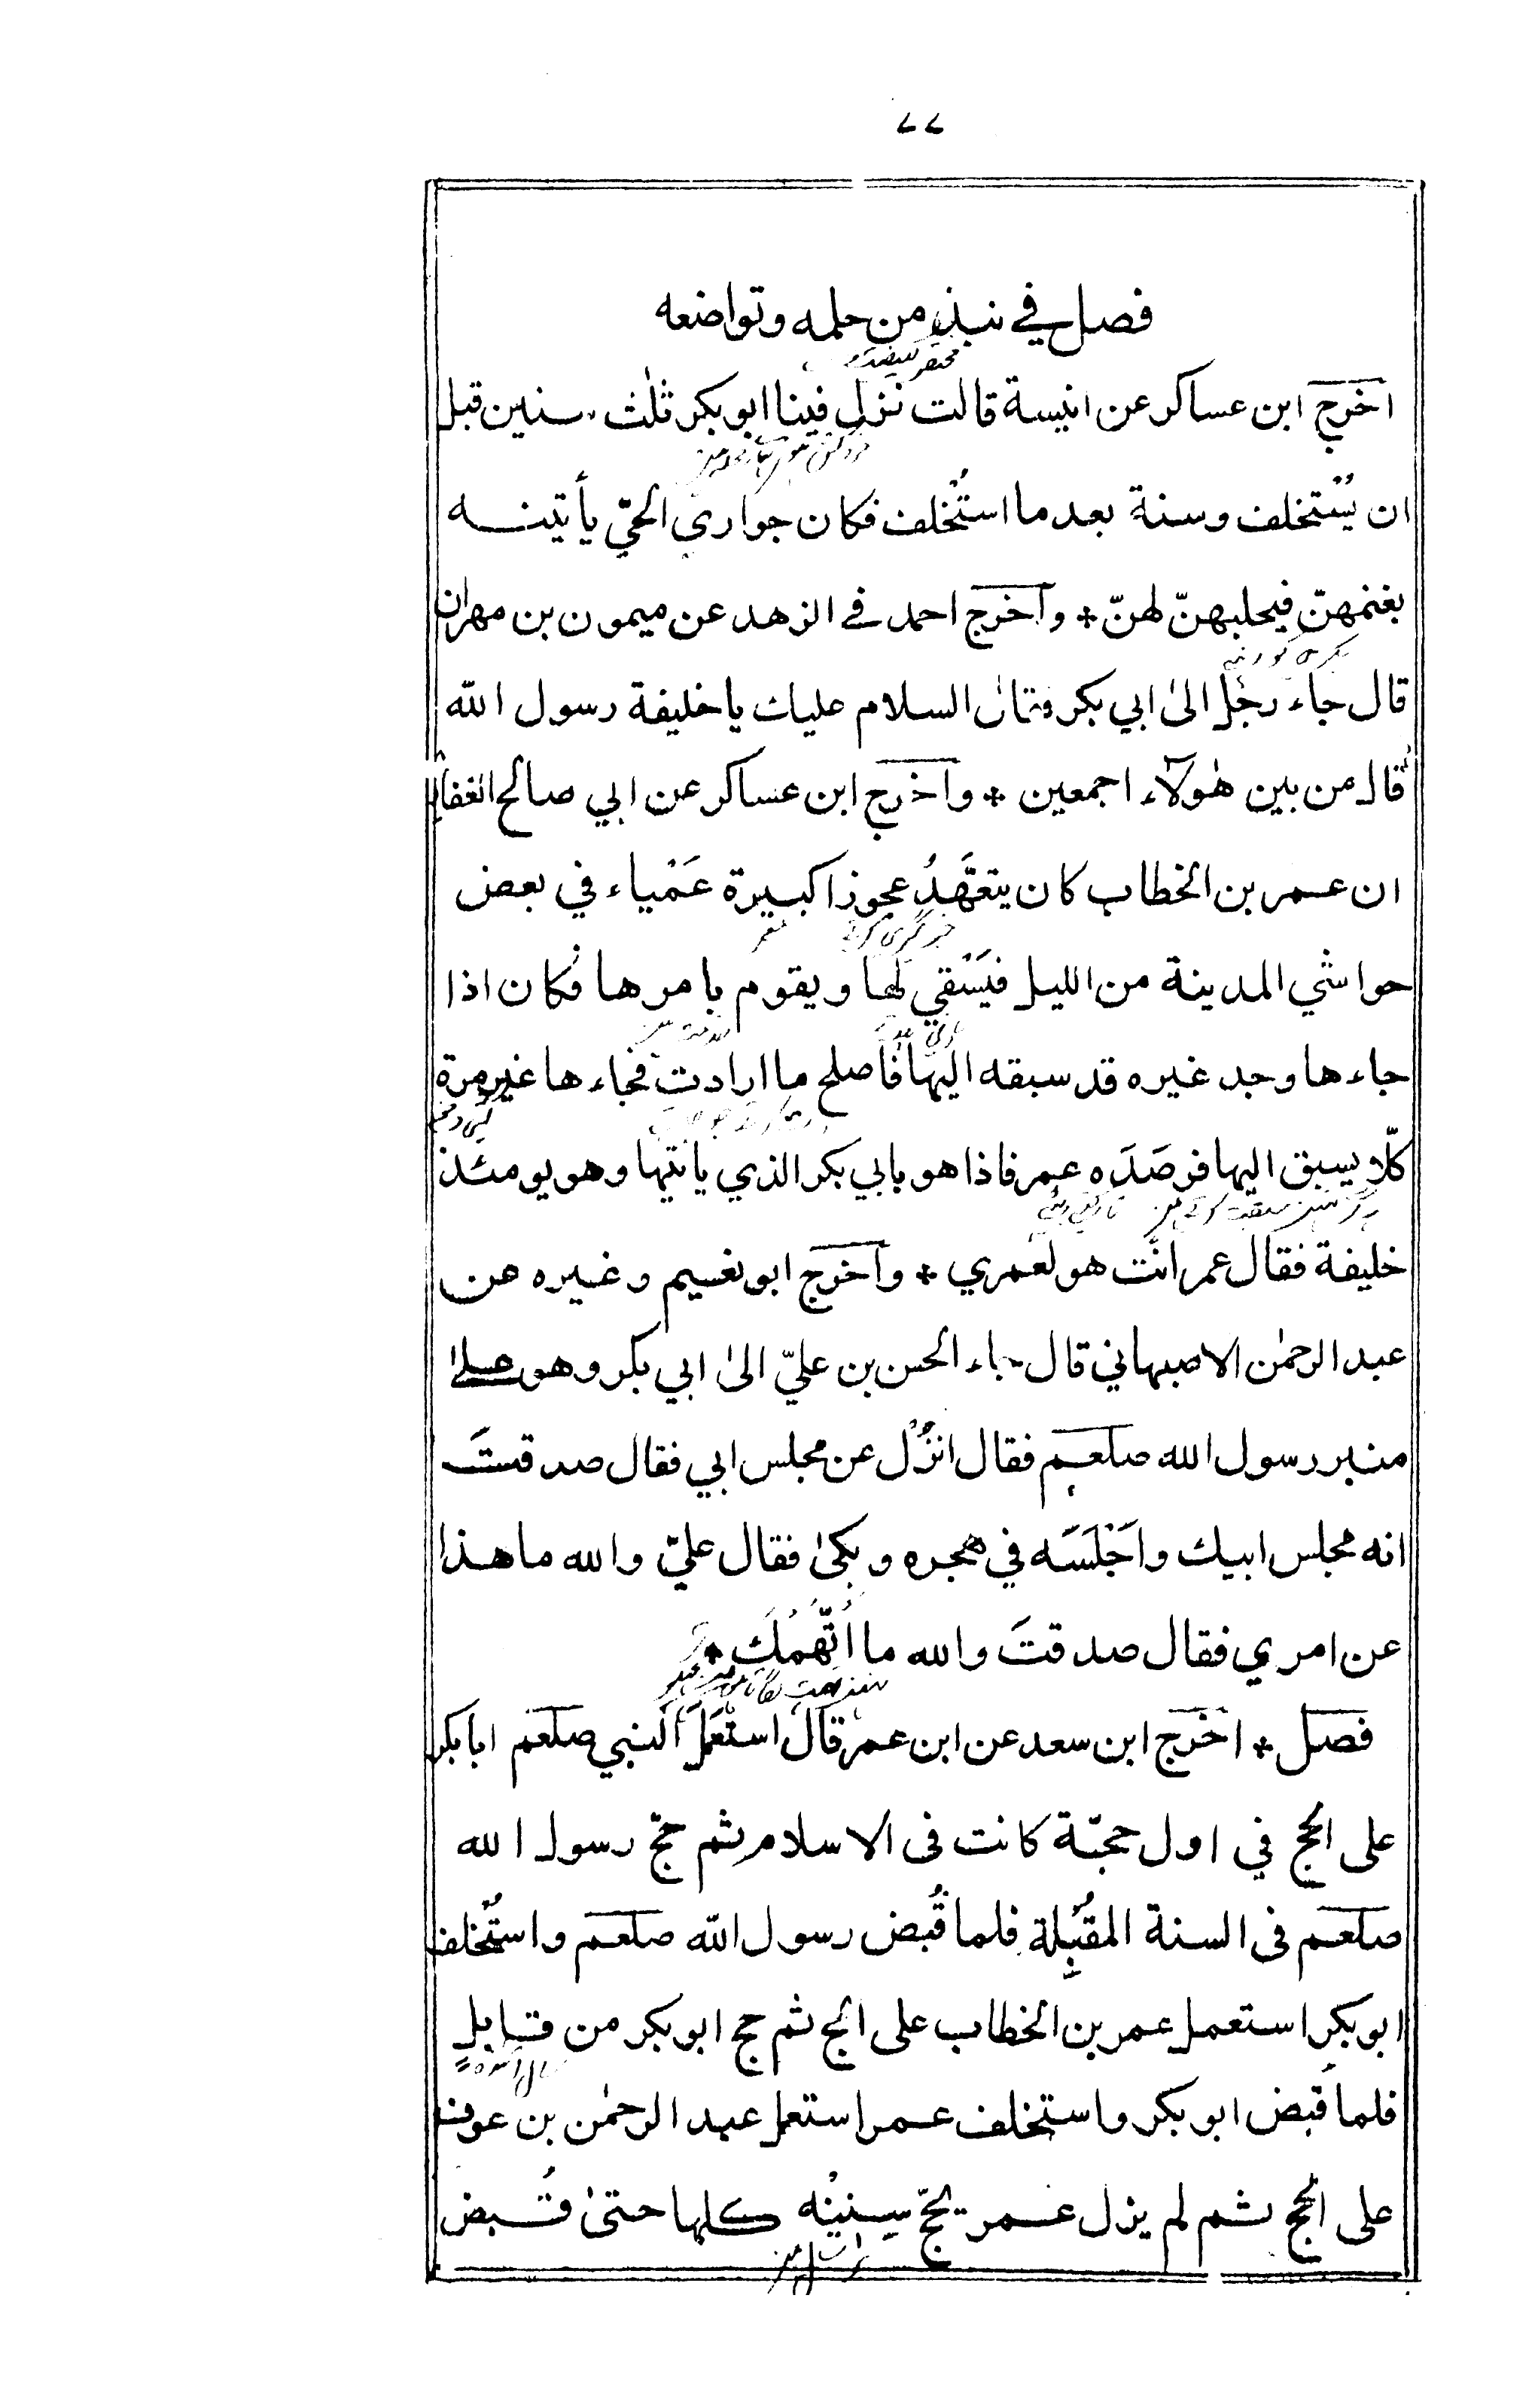 ٧٧
فصل في نبذ من حلمه وتواضعه
اخرج ابن عساكر عن انيسة قالت نزل فينا ابو بكر ثلٰث سنين قبل
ان يُسْتخلف وسنة بعد ما استُخلف فكان جواري الحيّ يأتينه
بغنمهنّ فيحلبهنّ لهنّ * وآخرج احمد في الزهد عن ميمون بن مهران
قال جاء رجل الىٰ ابي بكر فقال السلام عليك يا خليفة رسول الله
قال من بين هٰولآء اجمعين * وآخرج ابن عساكر عن ابي صالح الغفاري
ان عمر بن الخطاب كان يتعهَّدُ عجوزا كبيرة عَمْياء في بعض
حواشي المدينة من الليل فيَسْقي لها ويقوم بامرها فكان اذا
جاءها وجد غيره قد سبقه اليها فاصلح ما ارادت فجاءها غير مرة
كلّا يسبق اليها فرصَدَه عمر فاذا هو بابي بكر الذي ياتيها وهو يومئذ
خليفة فقال عمر انت هو لعمري * وآخرج ابو نعيم وغيره عن
عبد الرحمٰن الاصبهاني قال جاء الحسن بن عليّ الىٰ ابي بكر وهو علىٰ
منبر رسول الله صلعم فقال انزُل عن مجلس ابي فقال صدقتَ
انه مجلس ابيك واَجْلَسَه في حجره وبكىٰ فقال عليّ والله ما هذا
عن امري فقال صدقتَ والله ما اَتَّهِمُكَ *
فصل * اخرج ابن سعد عن ابن عمر قال استعمَلَ النبي صلعم ابا بكر
على الحج في اول حجّة كانت فى الاسلام ثم حجّ رسول الله
صلعم فى السنة المقبِلة فلما قُبض رسول الله صلعم واستُخلف
ابو بكر استعمل عمر بن الخطاب على الحج ثم حج ابو بكر من قابل
فلما قبض ابو بكر واستخلف عمر استعمل عبد الرحمٰن بن عوف
على الحج ثم لم يزل عمر يحجّ سِنِينَه كلها حتىٰ قُبض